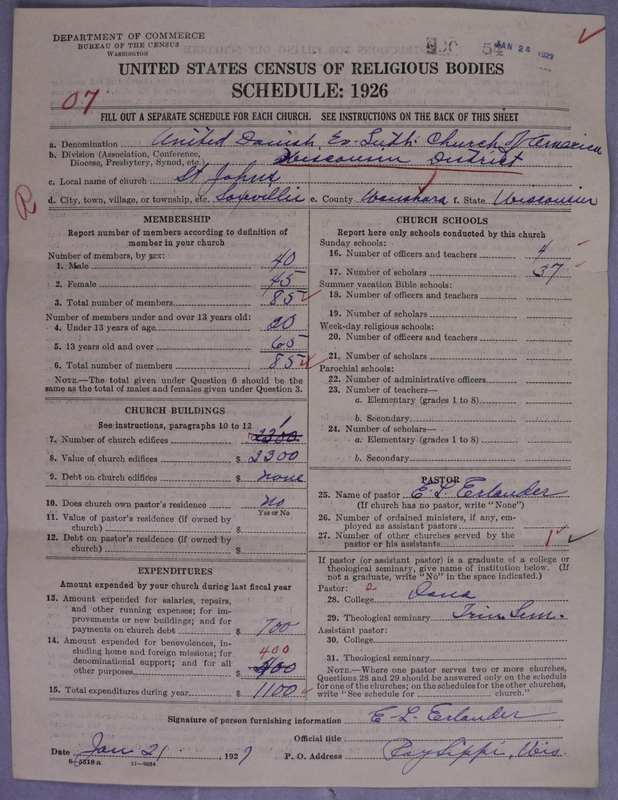 DEPARTMENT OF COMMERCE
BUREAU OF THE CENSUS
WASHINGTON
JAN 24 1927
UNITED STATES CENSUS OF RELIGIOUS BODIES
SCHEDULE: 1926
07
FILL OUT A SEPARATE SCHEDULE FOR EACH CHURCH. SEE INSTRUCTIONS ON THE BACK OF THIS SHEET
a. Denomination United Danish Ev. Luth. Church of America
b. Division (Association, Conference, Diocese, Presbytery, Synod, etc.) Wisconsin District
c. Local name of church St Johns
d. City, town, village, or township, etc. Saxeville e. County Waushara f. State Wisconsin
R
MEMBERSHIP
Report number of members according to definition of member in your church
Number of members, by sex:
1. Male 40
2. Female 45
3. Total number of members 85
Number of members under and over 13 years old:
4. Under 13 years of age 20
5. 13 years old and over 65
6. Total number of members 85
NOTE.—The total given under Question 6 should be the same as the total of males and females given under Question 3.
CHURCH BUILDINGS
See instructions, paragraphs 10 to 12
7. Number of church edifices 2300 1
8. Value of church edifices $ 2300
9. Debt on church edifices $ none
10. Does church own pastor's residence no
Yes or No
11. Value of pastor's residence (if owned by church) $
12. Debt on pastor's residence (if owned by church) $
EXPENDITURES
Amount expended by your church during last fiscal year
13. Amount expended for salaries, repairs, and other running expenses; for improvements or new buildings; and for payments on church debt $ 700
14. Amount expended for benevolences, including home and foreign missions; for denominational support; and for all other purposes $ 400 400
15. Total expenditures during year $ 1100
CHURCH SCHOOLS
Report here only schools conducted by this church
Sunday schools:
16. Number of officers and teachers 4
17. Number of scholars 37
Summer vacation Bible schools:
18. Number of officers and teachers
19. Number of scholars
Week-day religious schools:
20. Number of officers and teachers
21. Number of scholars
Parochial schools:
22. Number of administrative officers
23. Number of teachers—
a. Elementary (grades 1 to 8)
b. Secondary
24. Number of scholars—
a. Elementary (grades 1 to 8)
b. Secondary
PASTOR
25. Name of pastor E. L. Erlander
(If church has no pastor, write "None")
26. Number of ordained ministers, if any, employed as assistant pastors
27. Number of other churches served by the pastor or his assistants 1
If pastor (or assistant pastor) is a graduate of a college or theological seminary, give name of institution below. (If not a graduate, write "No" in the space indicated.)
Pastor: 2
28. College Dana
29. Theological seminary Trin. Sem.
Assistant pastor:
30. College
31. Theological seminary
NOTE.—Where one pastor serves two or more churches, Questions 28 and 29 should be answered only on the schedule for one of the churches; on the schedules for the other churches, write "See schedule for ........ church."
Signature of person furnishing information E. L. Erlander
Official title
Date Jan 21, 1927 P. O. Address Poy Sippi, Wis.
8-5518 a 11-9054